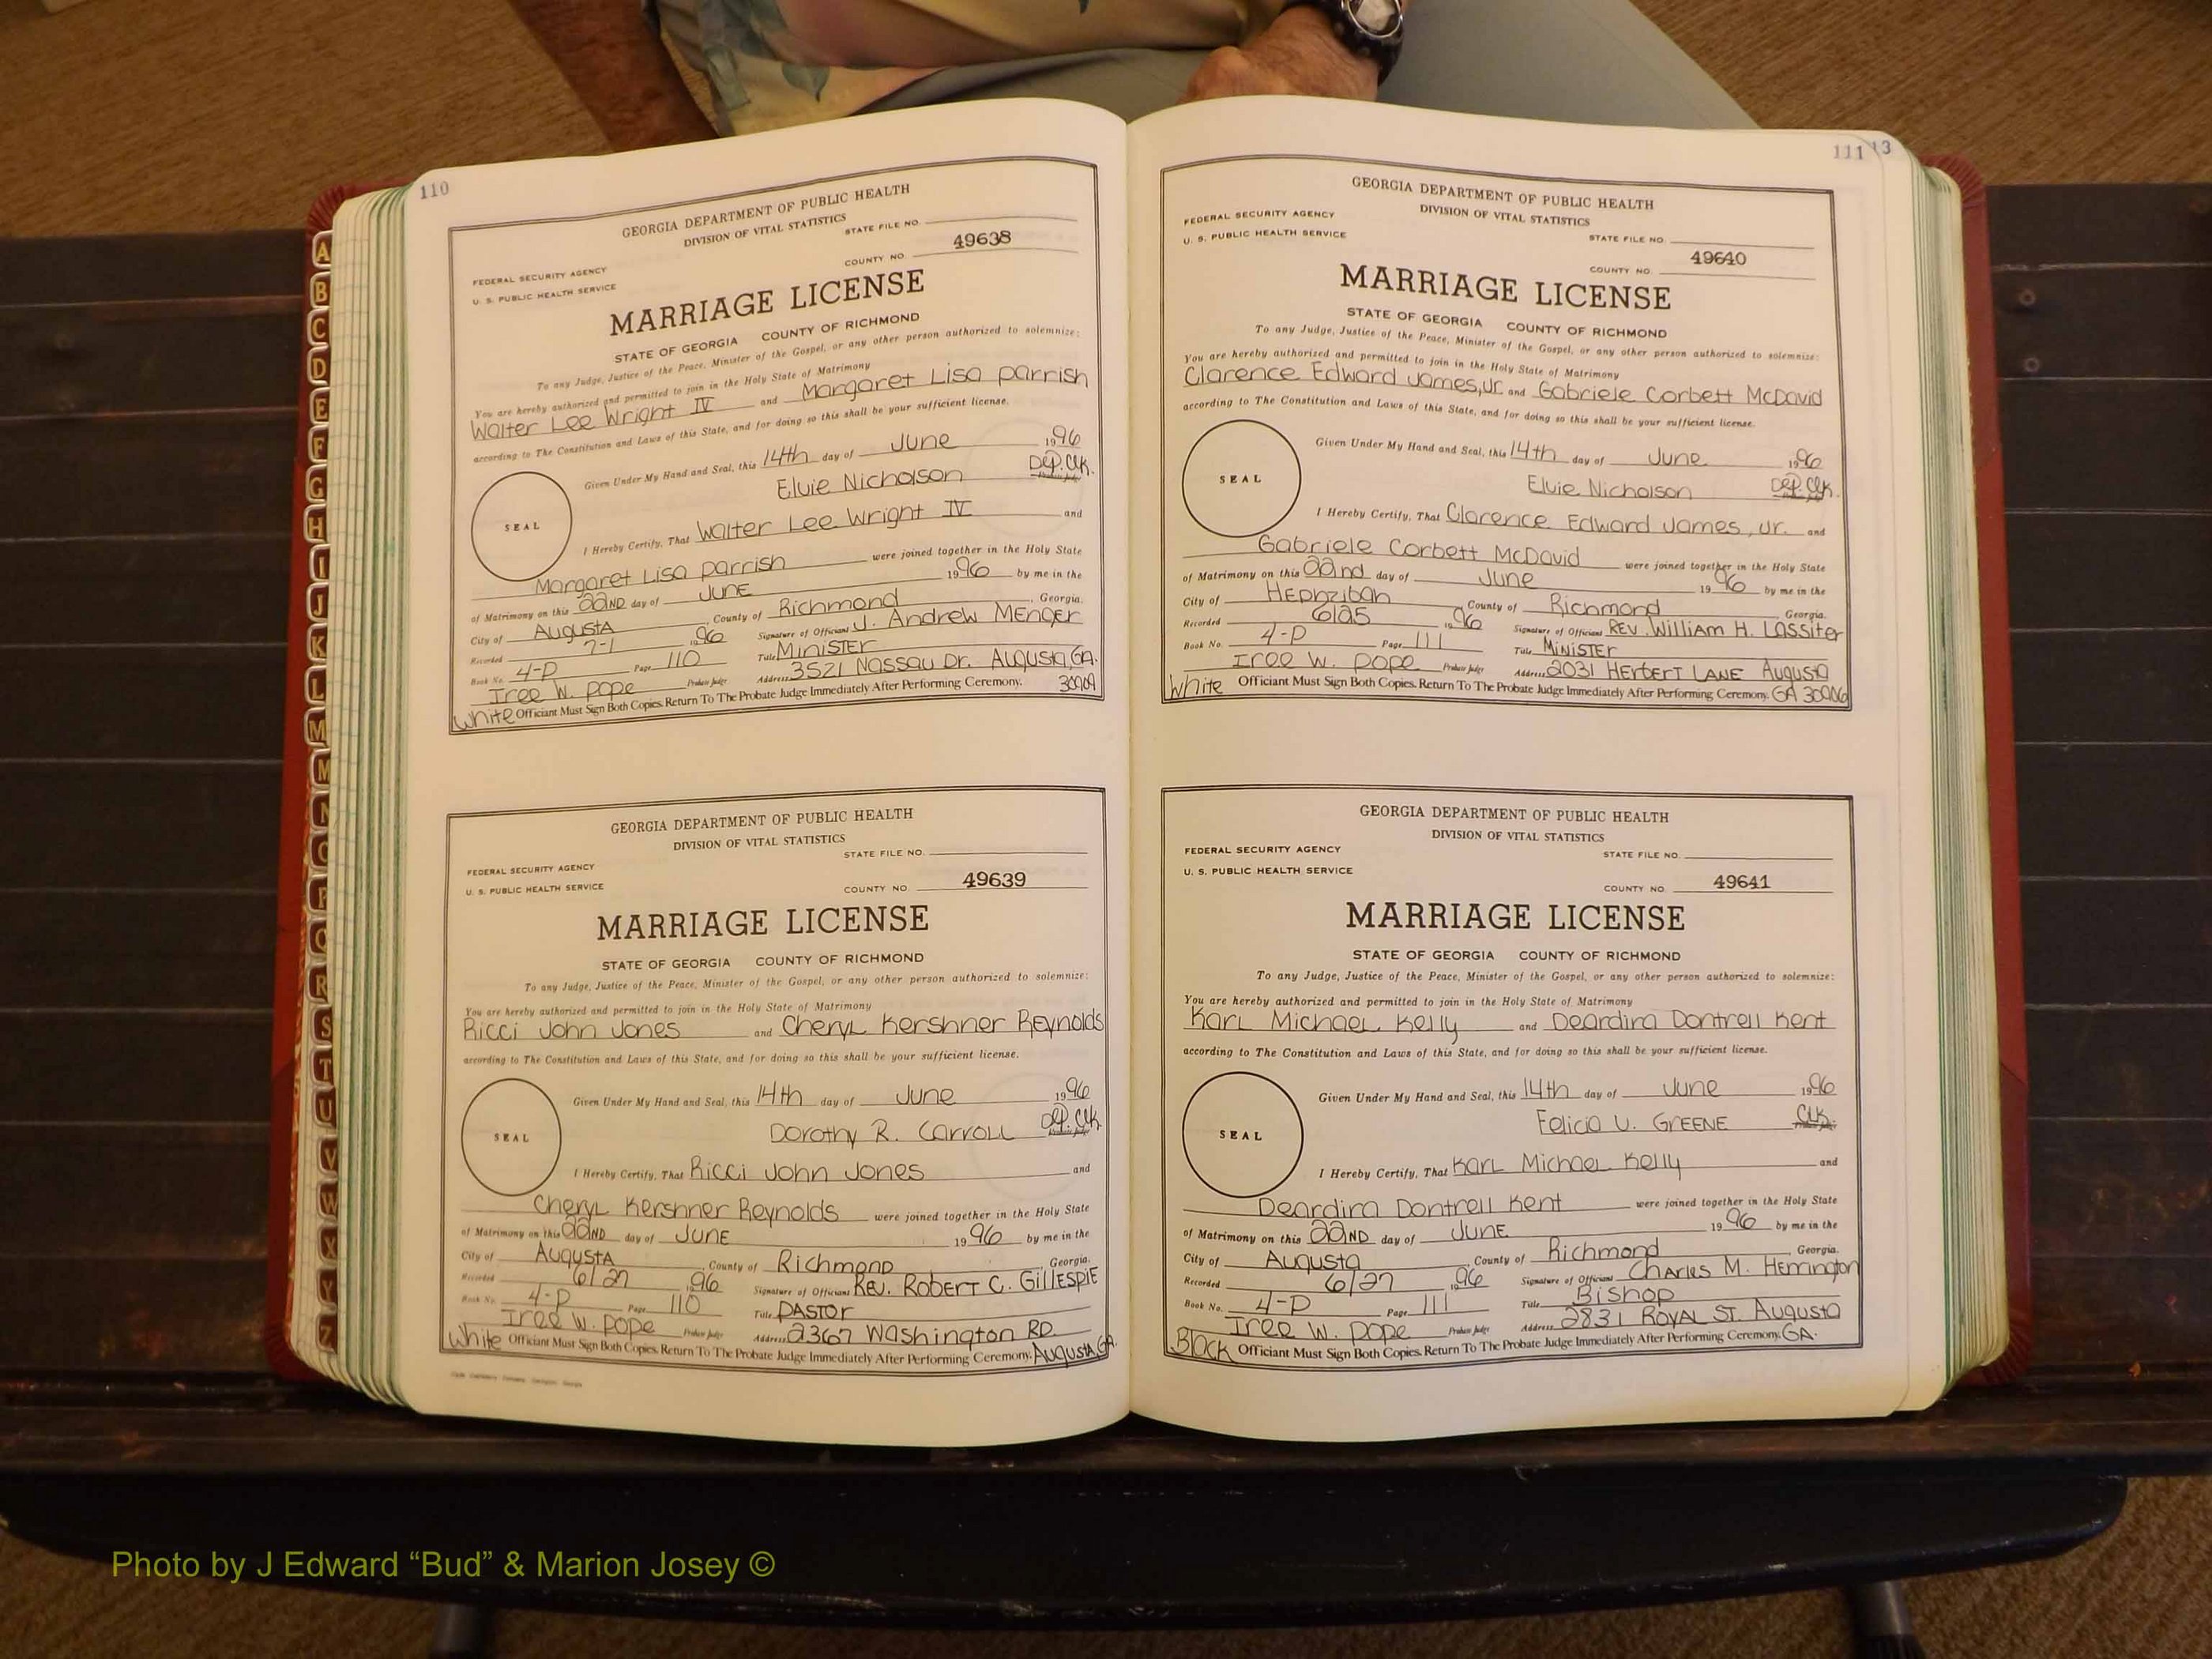 110
GEORGIA DEPARTMENT OF PUBLIC HEALTH
DIVISION OF VITAL STATISTICS
STATE FILE NO.
49638
COUNTY NO.
FEDERAL SECURITY AGENCY
U. S. PUBLIC HEALTH SERVICE
MARRIAGE LICENSE
STATE OF GEORGIA COUNTY OF RICHMOND
To any Judge, Justice of the Peace, Minister of the Gospel, or any other person authorized to solemnize:
You are hereby authorized and permitted to join in the Holy State of Matrimony
Walter Lee Wright IV and Margaret Lisa Parrish
according to The Constitution and Laws of this State, and for doing so this shall be your sufficient license.
Given Under My Hand and Seal, this 14th day of June 1996
Elvie Nicholson Dep. Clk.
SEAL
I Hereby Certify, That Walter Lee Wright IV and
Margaret Lisa Parrish were joined together in the Holy State
of Matrimony on this 22ND day of JUNE 1996 by me in the
City of AUGUSTA, County of Richmond, Georgia.
Recorded 7-1 1996 Signature of Official J. Andrew MENGER
Book No. 4-P Page 110 Title MINISTER
Iree W. Pope Probate Judge Address 3521 Nassau Dr. Augusta, GA.
White Officiant Must Sign Both Copies. Return To The Probate Judge Immediately After Performing Ceremony. 30909
GEORGIA DEPARTMENT OF PUBLIC HEALTH
DIVISION OF VITAL STATISTICS
STATE FILE NO.
FEDERAL SECURITY AGENCY
U. S. PUBLIC HEALTH SERVICE
COUNTY NO. 49639
MARRIAGE LICENSE
STATE OF GEORGIA COUNTY OF RICHMOND
To any Judge, Justice of the Peace, Minister of the Gospel, or any other person authorized to solemnize:
You are hereby authorized and permitted to join in the Holy State of Matrimony
Ricci John Jones and Cheryl Kershner Reynolds
according to The Constitution and Laws of this State, and for doing so this shall be your sufficient license.
Given Under My Hand and Seal, this 14th day of June 1996
Dorothy R. Carroll Dep. Clk.
SEAL
I Hereby Certify, That Ricci John Jones and
Cheryl Kershner Reynolds were joined together in the Holy State
of Matrimony on this 22ND day of JUNE 1996 by me in the
City of AUGUSTA, County of Richmond, Georgia.
Recorded 6/27 1996 Signature of Official REV. ROBERT C. GILLESPIE
Book No. 4-P Page 110 Title PASTOR
Iree W. Pope Probate Judge Address 2367 Washington RD.
White Officiant Must Sign Both Copies. Return To The Probate Judge Immediately After Performing Ceremony. AUGUSTA, GA.
111 13
GEORGIA DEPARTMENT OF PUBLIC HEALTH
DIVISION OF VITAL STATISTICS
FEDERAL SECURITY AGENCY
U. S. PUBLIC HEALTH SERVICE
STATE FILE NO.
49640
COUNTY NO.
MARRIAGE LICENSE
STATE OF GEORGIA COUNTY OF RICHMOND
To any Judge, Justice of the Peace, Minister of the Gospel, or any other person authorized to solemnize:
You are hereby authorized and permitted to join in the Holy State of Matrimony
Clarence Edward James, Jr. and Gabriele Corbett McDavid
according to The Constitution and Laws of this State, and for doing so this shall be your sufficient license.
Given Under My Hand and Seal, this 14th day of June 1996
Elvie Nicholson Dep. Clk.
SEAL
I Hereby Certify, That Clarence Edward James, Jr. and
Gabriele Corbett McDavid were joined together in the Holy State
of Matrimony on this 22nd day of June 1996 by me in the
City of Hephzibah, County of Richmond, Georgia.
Recorded 6/25 1996 Signature of Official REV. William H. Lassiter
Book No. 4-P Page 111 Title MINISTER
Iree W. Pope Probate Judge Address 2031 Herbert LANE Augusta
White Officiant Must Sign Both Copies. Return To The Probate Judge Immediately After Performing Ceremony. GA 30906
GEORGIA DEPARTMENT OF PUBLIC HEALTH
DIVISION OF VITAL STATISTICS
FEDERAL SECURITY AGENCY
STATE FILE NO.
U. S. PUBLIC HEALTH SERVICE
COUNTY NO. 49641
MARRIAGE LICENSE
STATE OF GEORGIA COUNTY OF RICHMOND
To any Judge, Justice of the Peace, Minister of the Gospel, or any other person authorized to solemnize:
You are hereby authorized and permitted to join in the Holy State of Matrimony
Karl Michael Kelly and Deardira Dontrell Kent
according to The Constitution and Laws of this State, and for doing so this shall be your sufficient license.
Given Under My Hand and Seal, this 14th day of June 1996
Felicia V. GREENE Clk.
SEAL
I Hereby Certify, That Karl Michael Kelly and
Deardira Dontrell Kent were joined together in the Holy State
of Matrimony on this 22ND day of JUNE 1996 by me in the
City of Augusta, County of Richmond, Georgia.
Recorded 6/27 1996 Signature of Official Charles M. Herrington
Book No. 4-P Page 111 Title Bishop
Iree W. Pope Probate Judge Address 2831 ROYAL ST. Augusta
Black Officiant Must Sign Both Copies. Return To The Probate Judge Immediately After Performing Ceremony. GA.
A
B
C
D
E
F
G
H
I
J
K
L
M
M
N
O
P
Q
R
S
T
U
V
W
X
Y
Z
Photo by J Edward “Bud” & Marion Josey ©